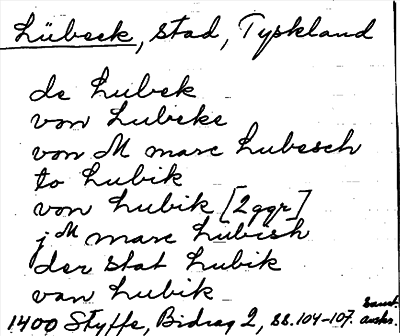 Lübeck, stad, Tyskland
de Lubek
von Lubeke
von M marc Lubesch
to Lubik
von Lubik [2 ggr]
j M marc Lubisk
der stat Lubik
van Lubik
1400 Styffe, Bidrag 2, ss. 104-107. samt. avskr.